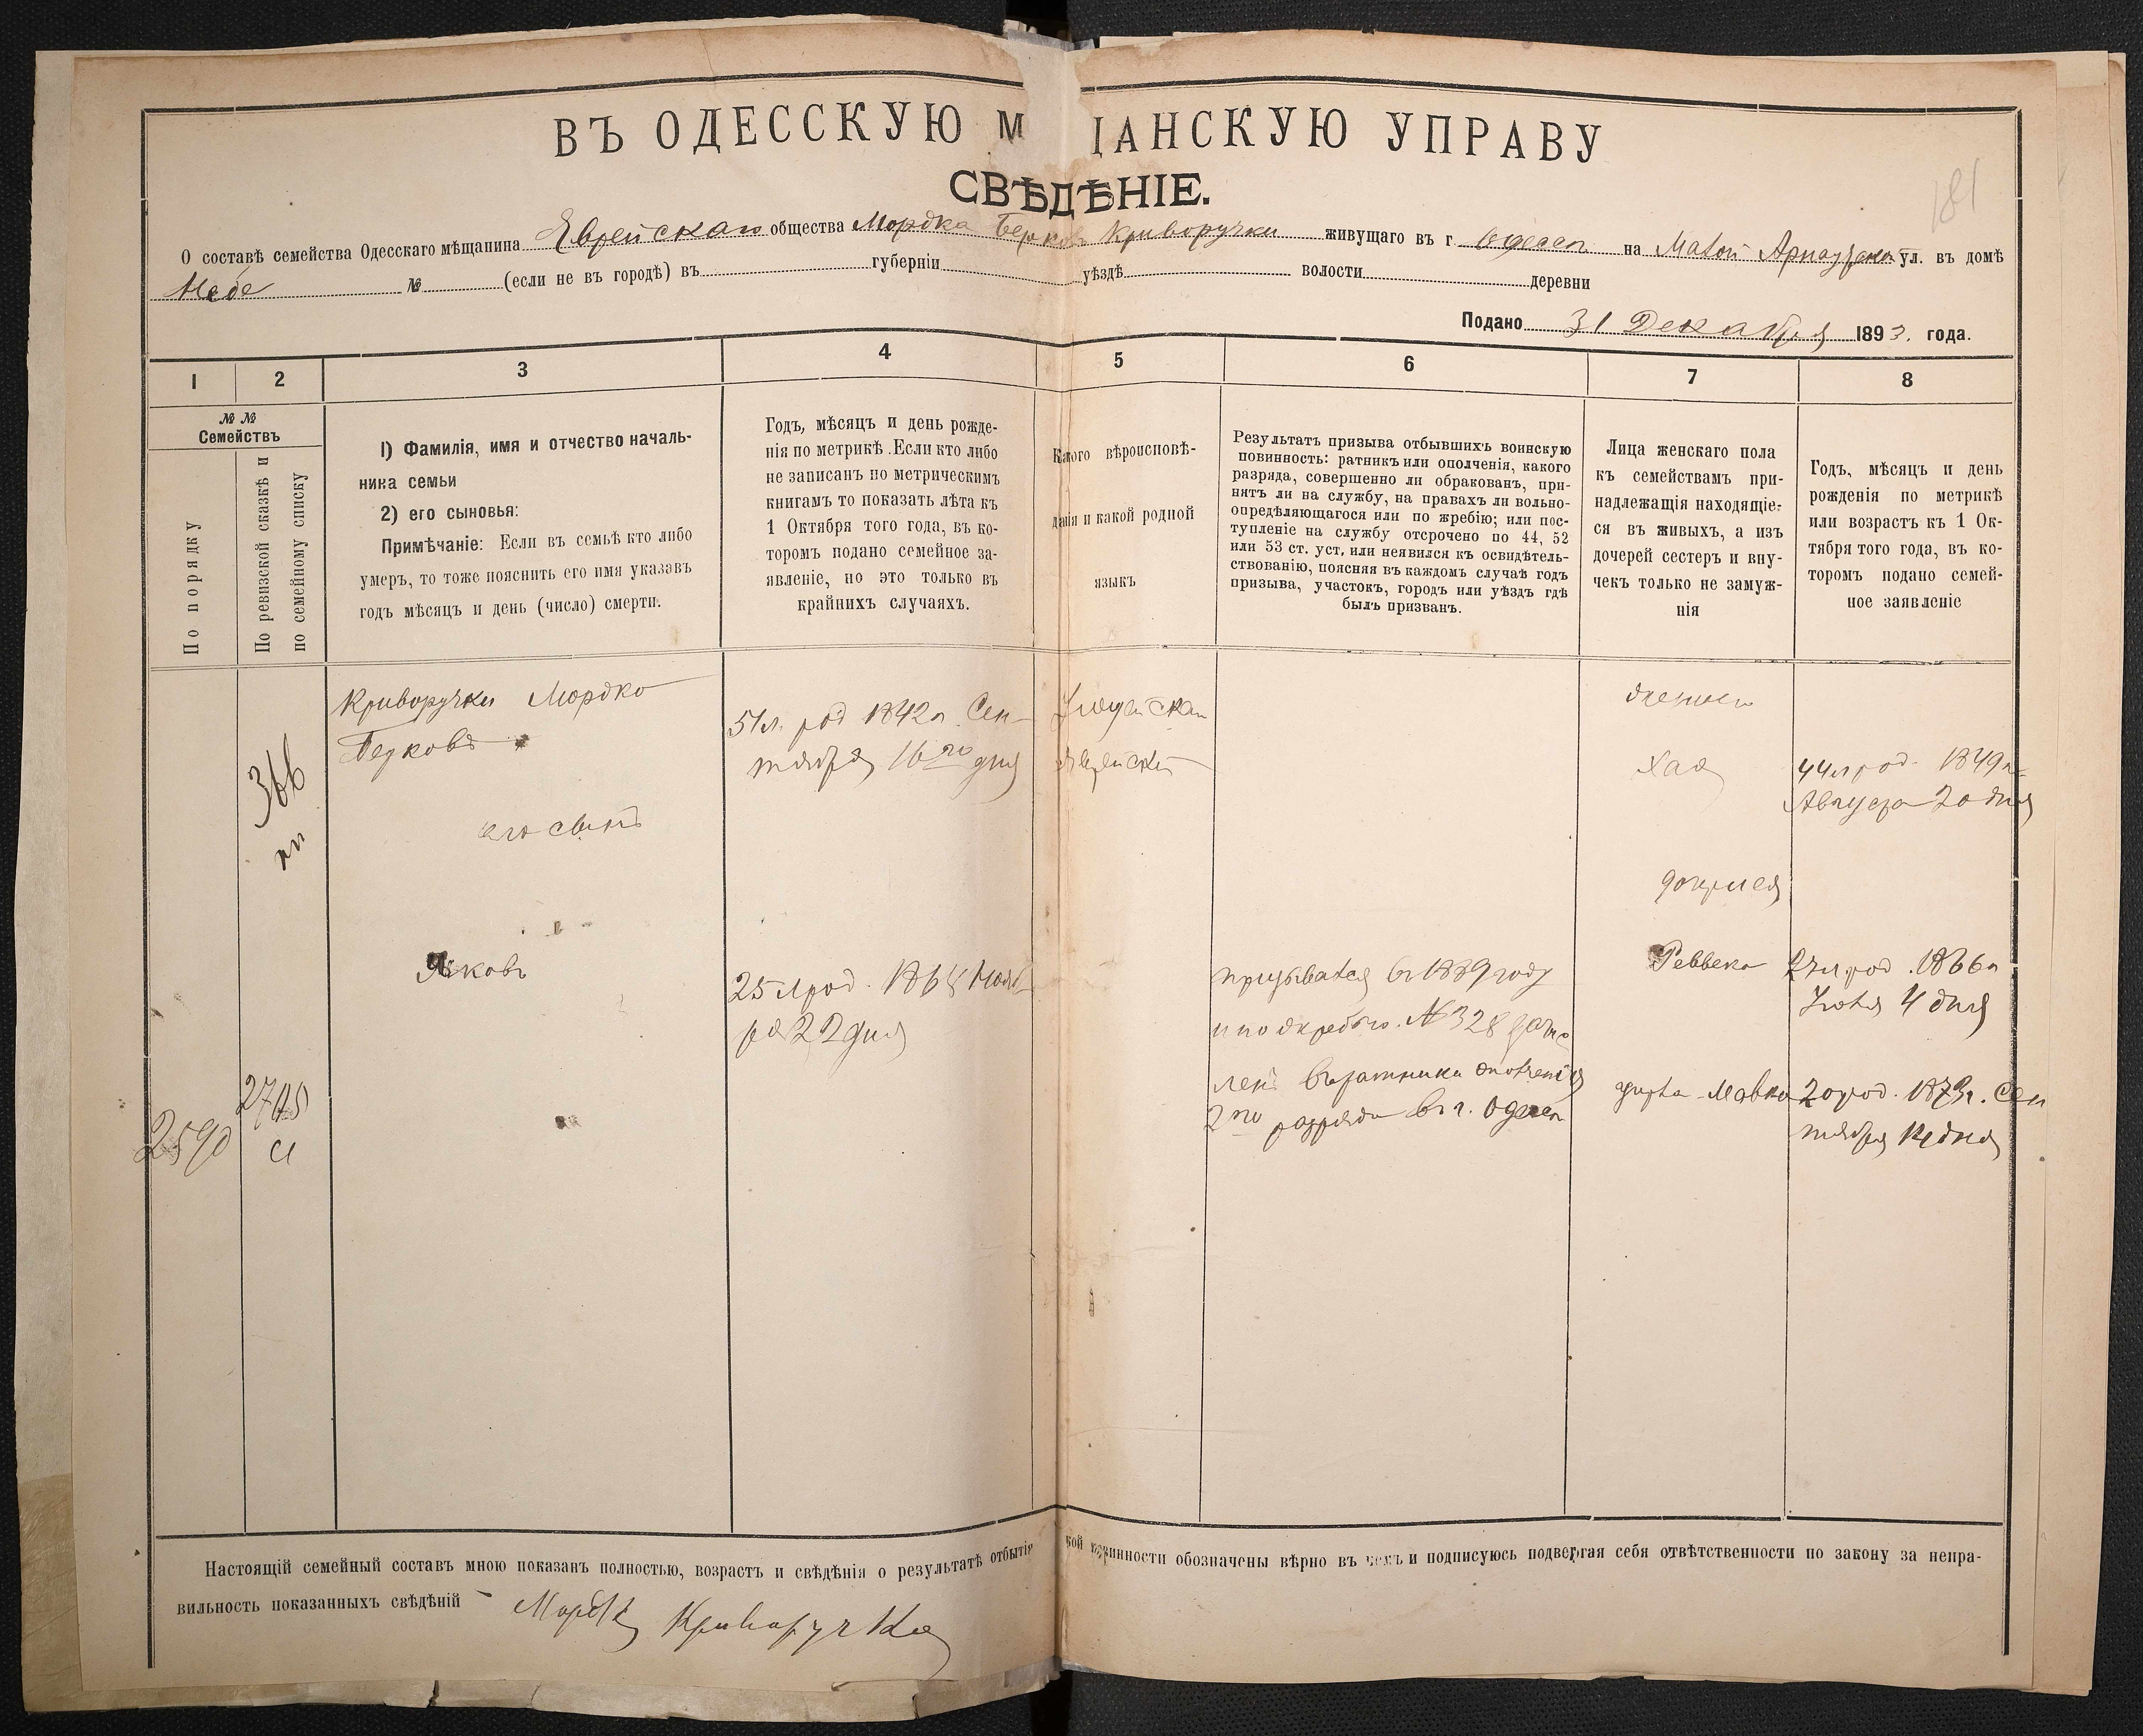 ВЪ ОДЕССКУЮ М ЩАНСКУЮ УПРАВУ
СВѢДѢНІЕ.
181
О составѣ семейства Одесскаго мѣщанина Еврейскаго общества Мордка Берковъ Криворучки живущаго въ г. Одессѣ на Малой Арнаутской ул. въ домѣ
№ (если не въ городѣ) въ губерніи уѣздѣ волости деревни
Подано 31 Декабря 1893. года.
1 2 3 4 5 6 7 8
№ №
Семействъ
По порядку
По ревизской сказкѣ и
по семейному списку
1) Фамилія, имя и отчество началь-
ника семьи
2) его сыновья:
Примѣчаніе: Если въ семьѣ кто либо
умеръ, то тоже пояснить его имя указавъ
годъ мѣсяцъ и день (число) смерти.
Годъ, мѣсяцъ и день рожде-
нія по метрикѣ. Если кто либо
не записанъ по метрическимъ
книгамъ то показать лѣта къ
1 Октября того года, въ ко-
торомъ подано семейное за-
явленіе, но это только въ
крайнихъ случаяхъ.
Какого вѣроисповѣ-
данія и какой родной
языкъ
Результатъ призыва отбывшихъ воинскую
повинность: ратникъ или ополченія, какого
разряда, совершенно ли обракованъ, при-
нятъ ли на службу, на правахъ ли вольно-
опредѣляющагося или по жребію; или пос-
тупленіе на службу отсрочено по 44, 52
или 53 ст. уст, или неявился къ освидѣтель-
ствованію, поясняя въ каждомъ случаѣ годъ
призыва, участокъ, городъ или уѣздъ гдѣ
былъ призванъ.
Лица женскаго пола
къ семействамъ при-
надлежащія находящіе-
ся въ живыхъ, а изъ
дочерей сестеръ и вну-
чекъ только не замуж-
нія
Годъ, мѣсяцъ и день
рожденія по метрикѣ
или возрастъ къ 1 Ок-
тября того года, въ ко-
торомъ подано семей-
ное заявленіе
366
Криворучки Мордко
Берковъ
51 л. род 1842 г. Сен-
тября 16го дня
Іюдейская
Еврейскій
Хая
44 л род. 1849 г.
Августа 20 дня
его сынъ
Яковъ
25 л род. 1868 Нояб
ря 22 дня
призывался въ 1889 году
и по жребью № 328 зачис
ленъ въ ратники ополченія
2го разряда въ г. Одессѣ
Реввека
27 л род. 1866 г
Іюля 4 дня
20 род. 1873 г. Сен
тября дня
2590
Настоящій семейный составъ мною показанъ полностью, возрастъ и свѣдѣнія о результатѣ отбытія кой повинности обозначены вѣрно въ чемъ и подписуюсь подвергая себя отвѣтственности по закону за непра-
вильность показанныхъ свѣдѣній Мордко Криворучка